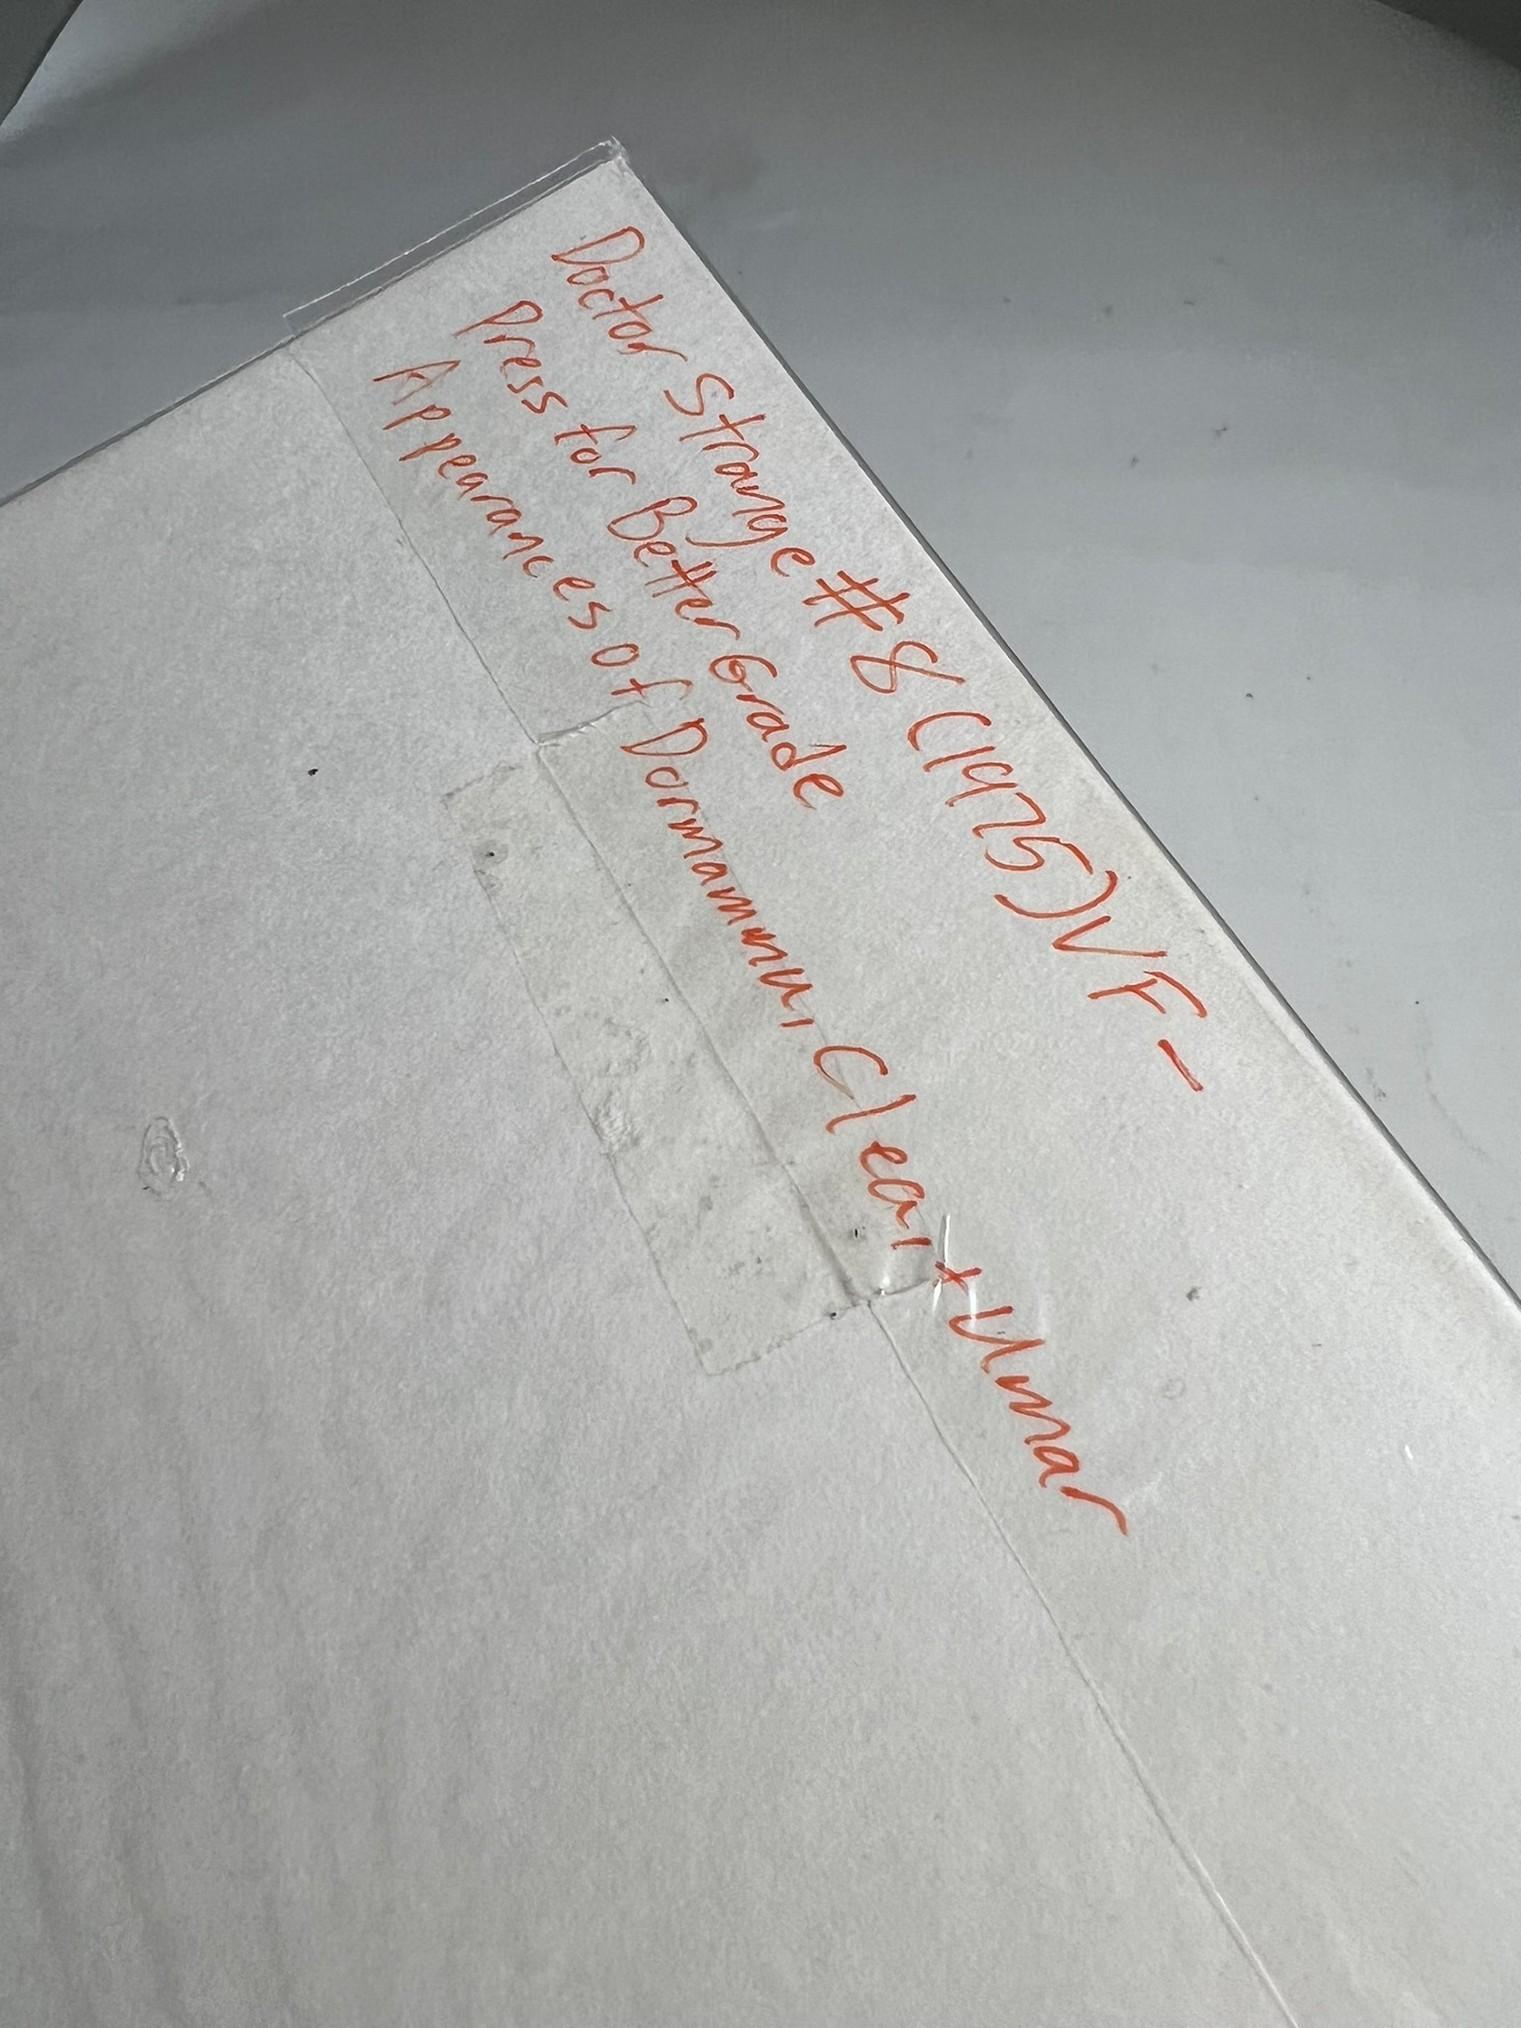 Doctor Strange #8 (1975) VF-
Press for Better Grade
Appearances of Dormammu, Clea, + Umar